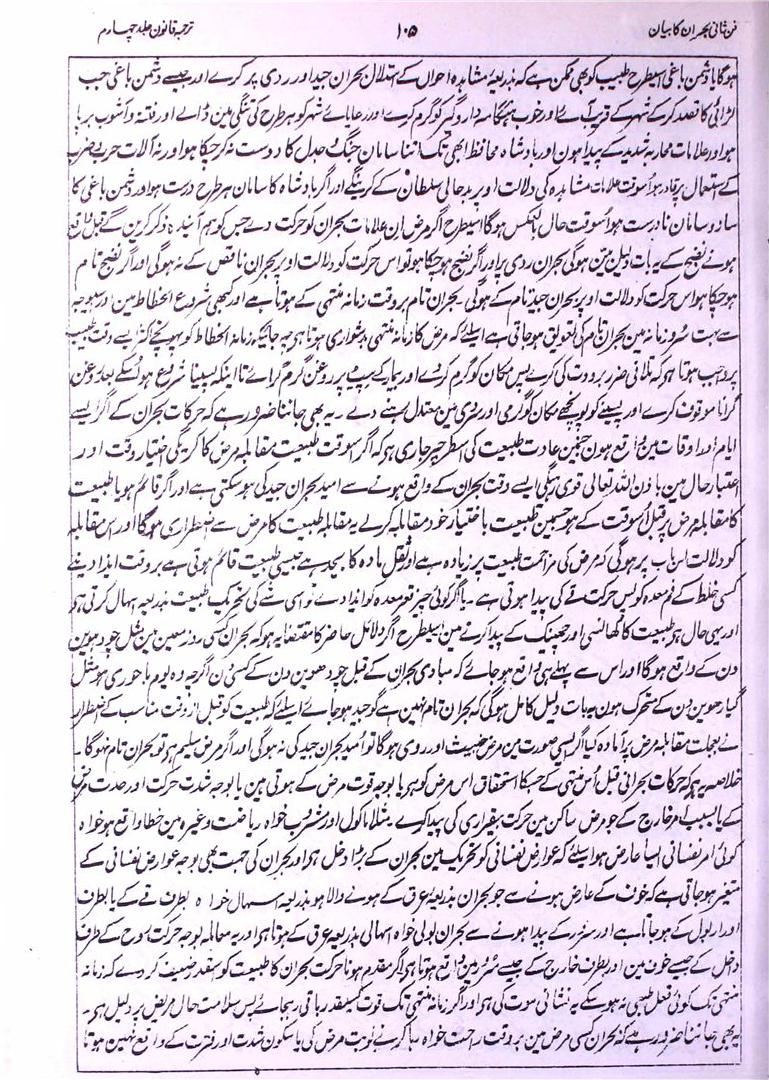 فن ثانی بحران کا بیان ۱۰۵ ترجمہ قانون جلد چہارم
ہوگا یا دشمن باغی اسیطرح طبیب کو بھی ممکن ہے کہ بذریعۂ مشاہدہ احوال کے استدلال بحران جید اور ردی پر کرے اور جیسے دشمن باغی جب
لڑائی کا قصد کر کے شہر کے قریب آئے اور خوب ہنگامہ دار و گیر کو گرم کرے اور رعایائے شہر کو ہر طرح کی تنگی مین ڈالے اور فتنہ و آشوب برپا
ہو اور علامات محاربہ شدید کے پیدا ہون اور بادشاہ محافظ ابھی تک اپنا سامان جنگ و جدل کا درست نہ کر چکا ہو اور نہ آلات حرب و ضرب
کے استعمال پر قادر ہو اسوقت علامات مشاہدہ کی دلالت اوپر بدحالی سلطان کے کرینگے اور اگر بادشاہ کا سامان ہر طرح درست ہو اور دشمن باغی کا
ساز و سامان نادرست ہو اسوقت حال بالعکس ہوگا اسیطرح اگر مرض ان علامات بحران کو حرکت دے جس کو ہم آیندہ ذکر کرین گے قبل واقع
ہونے نضج کے یہ بات دلیل مین ہوگی بحران ردی پر اور اگر نضج ہو چکا ہو تو اس حرکت کو دلالت اوپر بحران ناقص کے نہ ہوگی اور اگر نضج تام
ہو چکا ہو اس حرکت کو دلالت اوپر بحران جید تام کے ہوگی ۔ بحران تام بر وقت زمانہ منتہی کے ہوتا ہے اور کبھی شروع انحطاط مین اور بوجہ
سے بہت سرد زمانہ مین بحران تام کی تعویق ہو جاتی ہے اسلیے کہ مرض کا زمانہ منتہی بدشواری ہوتا ہی چہ جائیکہ زمانہ انحطاط کو پہونچے اکثر ایسے وقت طبیب
پر واجب ہوتا ہو کہ تلافی ضرر برودت کی کرے پس مکان کو گرم کر دے اور بیمار کے پیٹ پر روغن گرم گرائے تا اینکہ پسینا شروع ہو اسکے بعد روغن
گرانا موقوف کرے اور پسینے کو پونچھے مکان کو گرمی اور سردی مین معتدل رہنے دے ۔ یہ بھی جاننا ضرور ہے کہ حرکات بحران کے اگر ایسے
ایام اور اوقات مین واقع ہون جنمین عادت طبیعت کی اسطرح پر جاری ہو کہ اگر اسوقت طبیعت مقابلہ مرض کا کریگی اختیار وقت اور
اعتبار حال مین باذن اللہ تعالی قوی رہیگی ایسے وقت بحران کے واقع ہونے سے امید بحران جید کی ہو سکتی ہے اور اگر قائم ہونا طبیعت
کا مقابلہ مرض پر قبل اسوقت کے ہو جسمین طبیعت باختیار خود مقابلہ کرے یہ مقابلہ طبیعت کا مرض سے اضطراری ہوگا اور اس مقابلہ
کو دلالت اس بات پر ہوگی کہ مرض کی مزاحمت طبیعت پر زیادہ ہے اور ثقل مادہ کا بیحد ہے جیسی طبیعت قائم ہوتی ہے بر وقت ایذا دینے
کسی خلط کے فم معدہ کو پس حرکت قے کی پیدا ہوتی ہے ۔ یا اگر کوئی چیز قعر معدہ کو ایذا دے تو اسی شے کی تحریک طبیعت بذریعہ اسہال کرتی ہو
اور یہی حال ہو طبیعت کا کھانسی اور چھینک کے پیدا کرنے مین اسیطرح اگر دلائل حاضر کا مقتضا یہ ہو کہ بحران کسی روز معین مین مثل چودہوین
دن کے واقع ہوگا اور اس سے پہلے ہی واقع ہو جائے کہ مبادی بحران کے قبل چودھوین دن کے کسی دن اگرچہ وہ یوم باحوری ہو مثل
گیارہوین دن کے متحرک ہون یہ بات دلیل کامل ہوگی کہ بحران تام نہین ہے گو جید ہو جائے اسلیے کہ طبیعت کو قبل از وقت مناسب کے اضطرار
نے بعجلت مقابلہ مرض پر آمادہ کیا اگر ایسی صورت مین مرض خبیث اور ردی ہوگا تو امید بحران جید کی نہ ہوگی اور اگر مرض سلیم ہو تو بحران تام نہوگا ۔
خلاصہ یہ ہو کہ حرکات بحرانی قبل اس منتہی کے جسکا استحقاق اس مرض کو ہو یا بوجہ قوت مرض کے ہوتی ہین یا بوجہ شدت حرکت اور حدت مرض
کے یا بسبب امر خارج کے جو مرض ساکن مین حرکت بیقراری کی پیدا کرے ۔ مثلا ماکول اور مشروب خواہ ریاضت وغیرہ مین خطا واقع ہو خواہ
کوئی امر نفسانی ایسا عارض ہو اسلیے کہ عوارض نفسانی کو تحریک مین بحران کے بڑا دخل ہو اور بحران کی جہت بھی بوجہ عوارض نفسانی کے
متغیر ہو جاتی ہے کہ خوف کے عارض ہونے سے جو بحران بذریعہ عرق کے ہونے والا ہو بذریعہ اسہال خواہ بطرف قے کے یا بطرف
ادرار بول کے ہو جاتا ہے اور سرور کے پیدا ہونے سے بحران بولی خواہ اسہالی بذریعہ عرق کے ہوتا ہو اور یہ معاملہ بوجہ حرکت روح کے طرف
داخل کے جیسے خوف مین اور بطرف خارج کے جیسے سرور مین واقع ہوتا ہو اگر مقدم ہونا حرکت بحران کا طبیعت کو اسقدر ضعیف کر دے کہ زمانہ
منتہی تک کوئی فعل طبعی نہ ہو سکے یہ نشانی موت کی ہو اور اگر زمانہ منتہی تک قوت کسیقدر باقی رہجائے پس سلامت حال مریض پر دلیل ہو ۔
یہ بھی جاننا ضرور ہے کہ بحران کسی مرض مین بر وقت راحت خواہ رہا کرنے نوبت مرض کی یا سکون شدت اور فترت کے واقع نہین ہوتا